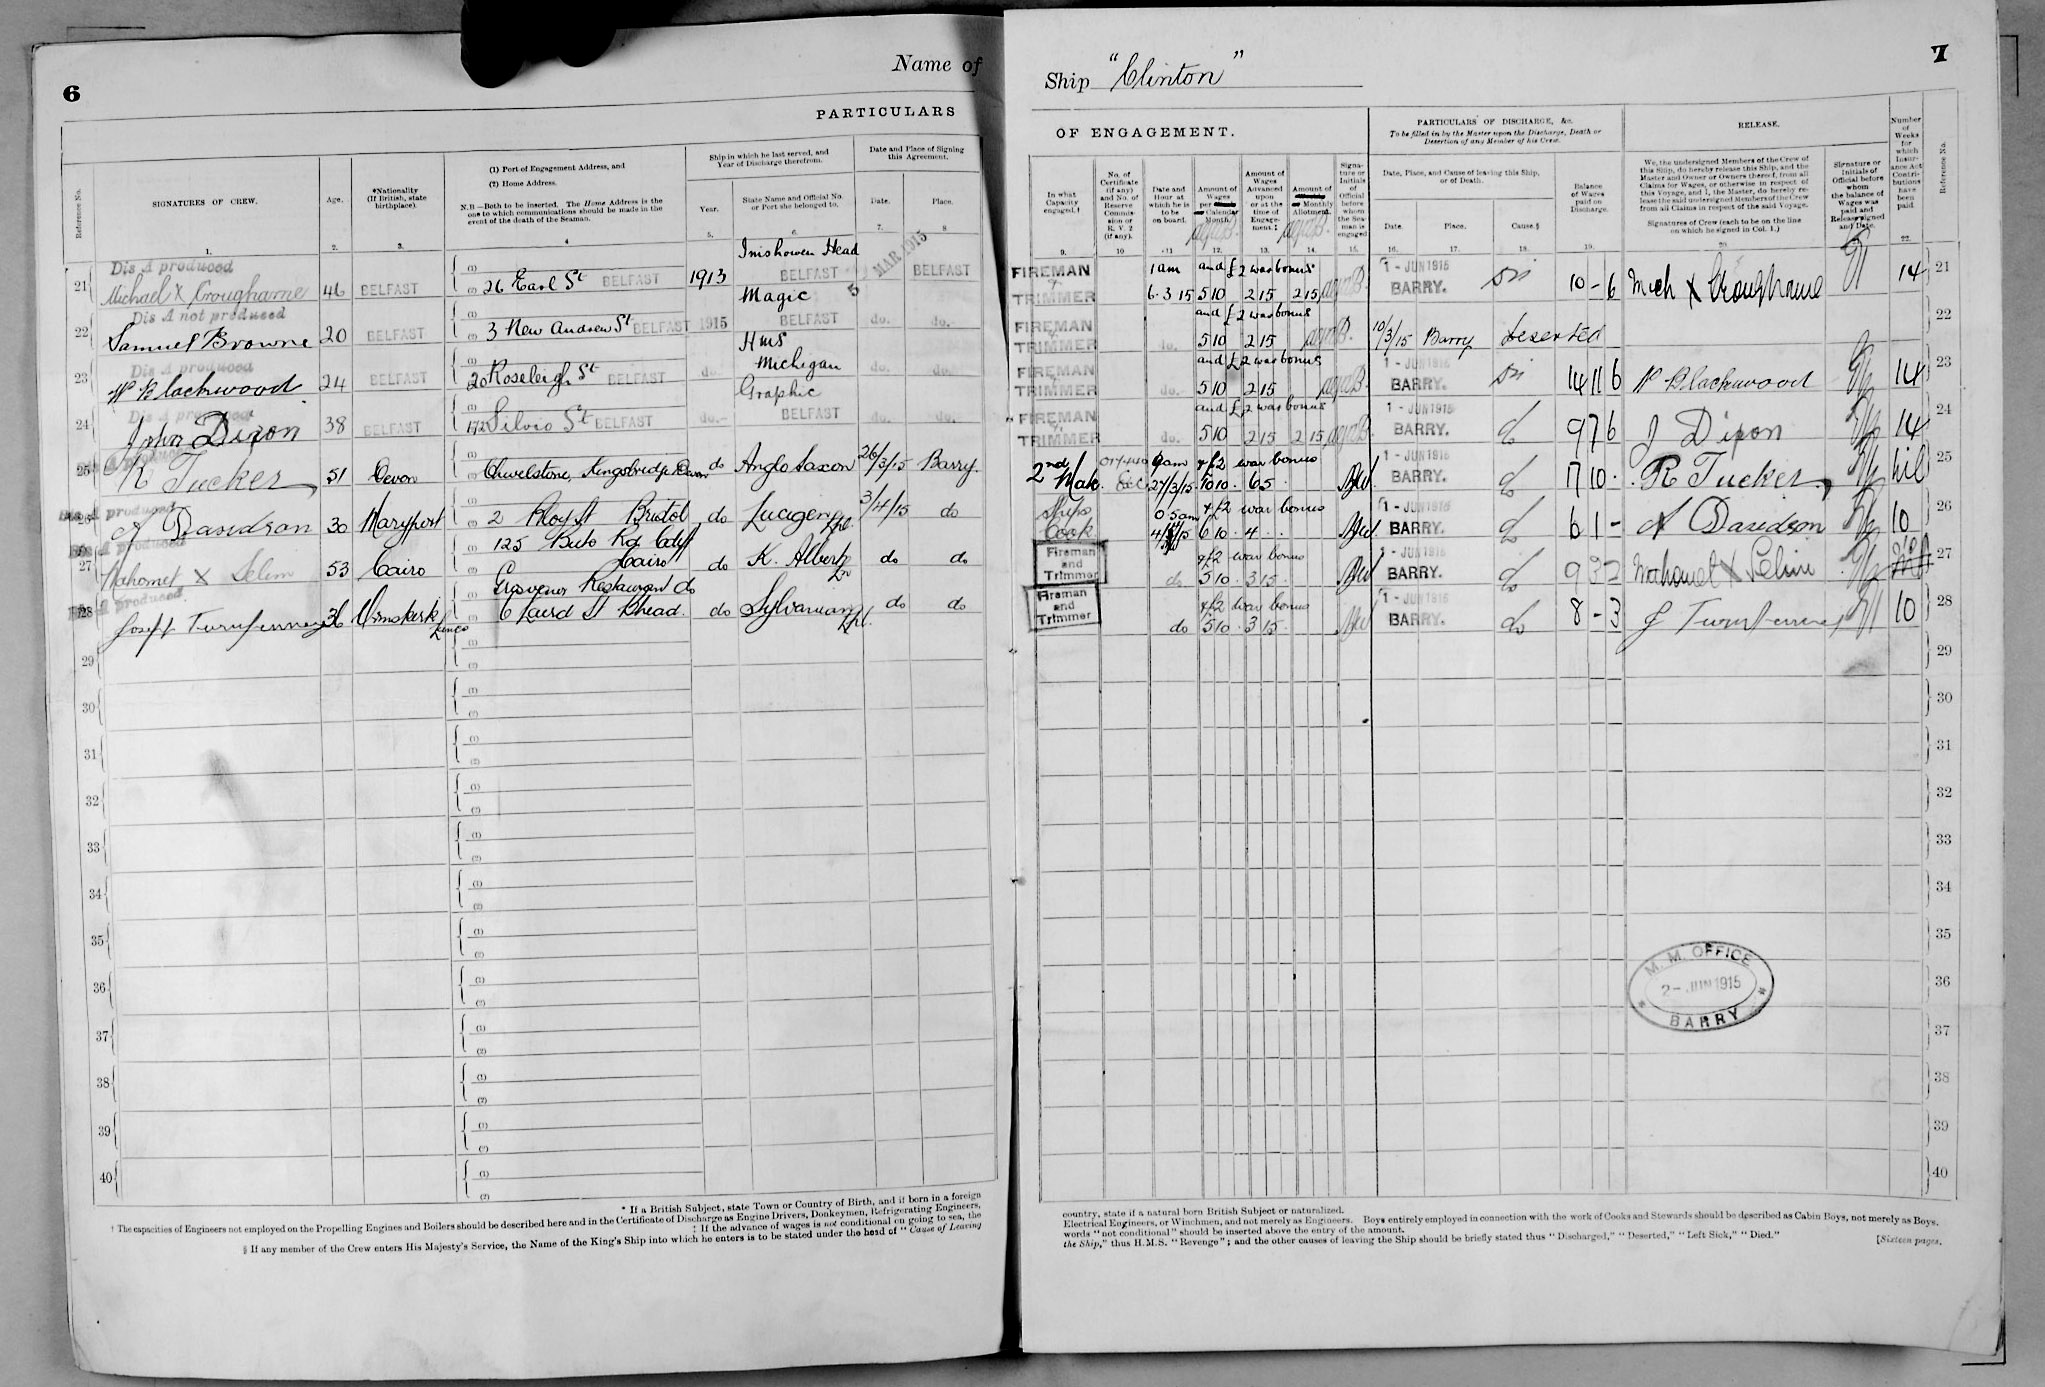 6
Name of
PARTICULARS
Reference No.
SIGNATURES OF CREW.
Age.
*Nationality
(If British, state
birthplace).
(1) Port of Engagement Address, and
(2) Home Address.
N.B.—Both to be inserted. The Home Address is the
one to which communications should be made in the
event of the death of the Seaman.
Ship in which he last served, and
Year of Discharge therefrom.
Year.
State Name and Official No.
or Port she belonged to.
Date and Place of Signing
this Agreement.
Date.
Place.
1. 2. 3. 4 5. 6. 7. 8
Dis A produced
21 Michael X 46 BELFAST 26 Earl St BELFAST 1913 Inishowen Head BELFAST 5 MAR 1915 BELFAST
Dis A not produced
22 Samuel Browne 20 BELFAST 3 New Andrew St BELFAST 1915 Magic BELFAST do. do.
Dis A produced
23 W Blackwood 24 BELFAST 20 Roseleigh St BELFAST do. HMS Michigan do. do.
Dis A produced
24 John Dixon 38 BELFAST 172 Silvio St BELFAST do. Graphic BELFAST do. do.
25 R Tucker 51 Devon Chivelstone, Kingsbridge Devon do Anglo Saxon 26/3/15 Barry.
Dis A produced
26 A Davidson 30 Maryport 2 St Bristol do 3/4/15 do
Dis A produced
27 Mahomet X Selim 53 Cairo 125 Bute Rd Cdff Cairo do K. Albert do do
Dis A produced
28 Joseph 36 Ormskirk Lancs Grosvenor Restaurant do 6 Laird St Bhead. do Sylvanian Lpl. do do
29
30
31
32
33
34
35
36
37
38
39
40
* If a British Subject, state Town or Country of Birth, and if born in a foreign
† The capacities of Engineers not employed on the Propelling Engines and Boilers should be described here and in the Certificate of Discharge as Engine Drivers, Donkeymen, Refrigerating Engineers,
‡ If the advance of wages is not conditional on going to sea, the
§ If any member of the Crew enters His Majesty's Service, the Name of the King's Ship into which he enters is to be stated under the head of "Cause of Leaving
7
Ship "Clinton"
OF ENGAGEMENT.
In what
Capacity
engaged.†
No. of
Certificate
(if any)
and No. of
Reserve
Commis-
sion or
R. V. 2
(if any).
Date and
Hour at
which he is
to be
on board.
Amount of
Wages
per
Calendar
Month.
Amount of
Wages
Advanced
upon
or at the
time of
Engage-
ment.‡
Amount of
Monthly
Allotment.
Signa-
ture or
Initials
of
Official
before
whom
the Sea-
man is
engaged
PARTICULARS OF DISCHARGE, &c.
To be filled in by the Master upon the Discharge, Death or
Desertion of any Member of his Crew.
Date, Place, and Cause of leaving this Ship,
or of Death.
Date.
Place.
Cause.§
Balance
of Wages
paid on
Discharge.
RELEASE.
We, the undersigned Members of the Crew of
this Ship, do hereby release this Ship, and the
Master and Owner or Owners thereof, from all
Claims for Wages, or otherwise in respect of
this Voyage, and I, the Master, do hereby re-
lease the said undersigned Members of the Crew
from all Claims in respect of the said Voyage.
Signatures of Crew (each to be on the line
on which he signed in Col. 1.)
Signature or
Initials of
Official before
whom
the balance of
Wages was
paid and
Release signed
and Date.
Number
of
Weeks
for
which
Insur-
ance Act
Contri-
butions
have
been
paid.
Reference No.
9. 10 11 12. 13. 14. 15. 16. 17. 18. 19. 20. 22.
FIREMAN & TRIMMER 1 am 6.3.15 and £2 war bonus 5 10 2 15 2 15 1 - JUN 1915 BARRY. 10 - 6 Mich X 14 21
FIREMAN & TRIMMER do. and £2 war bonus 5 10 2 15 10/3/15 Barry Deserted 22
FIREMAN & TRIMMER do. and £2 war bonus 5 10 2 15 1 - JUN 1915 BARRY. 14 11 6 W Blackwood 14 23
FIREMAN & TRIMMER do. and £2 war bonus 5 10 2 15 2 15 1 - JUN 1915 BARRY. do 9 7 6 J Dixon 14 24
2nd Mate 9 am 27/3/15 & £2 war bonus 10 10. 6 5 1 - JUN 1915 BARRY. do 7 10. R Tucker Nil 25
Ships Cook 5 am & £2 war bonus 6 10. 4 1 - JUN 1915 BARRY. do 6 1 - A Davidson 10 26
Fireman and Trimmer do & £2 war bonus 5 10. 3 15. 1 - JUN 1915 BARRY. do Mahomet X Selim 27
Fireman and Trimmer do & £2 war bonus 5 10. 3 15. 1 - JUN 1915 BARRY. do 8 - 3 J 10 28
29
30
31
32
33
34
35
M. M. OFFICE
2 - JUN 1915
BARRY
36
37
38
39
40
country, state if a natural born British Subject or naturalized.
Electrical Engineers, or Winchmen, and not merely as Engineers. Boys entirely employed in connection with the work of Cooks and Stewards should be described as Cabin Boys, not merely as Boys.
words "not conditional" should be inserted above the entry of the amount.
the Ship," thus H.M.S. "Revenge"; and the other causes of leaving the Ship should be briefly stated thus "Discharged," "Deserted," "Left Sick," "Died."
[Sixteen pages.